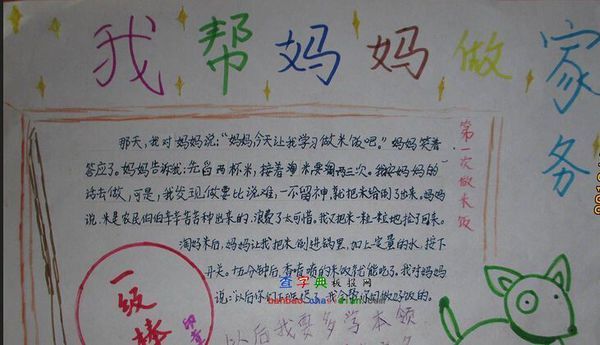 我帮妈妈做家务
第一次做米饭
那天,我对妈妈说:“妈妈今天让我学习做米饭吧。”妈妈笑着
答应了。妈妈告诉我:先舀两杯米,接着淘米要淘两三次。我按妈妈的
话去做,可是,我发现做要比说难,一不留神,就把米给倒了出来。妈妈
说:米是农民伯伯辛辛苦苦种出来的,浪费了太可惜。我又把米一粒一粒地捡了回来。
淘好米后,妈妈让我把米倒进锅里,加上定量的水,按下
开关。十几分钟后,香喷喷的米饭就能吃了。我对妈妈
说:以后你们下班晚了,我会帮你们做好饭的。
一级棒
查字典板报网
以后我要多学本领